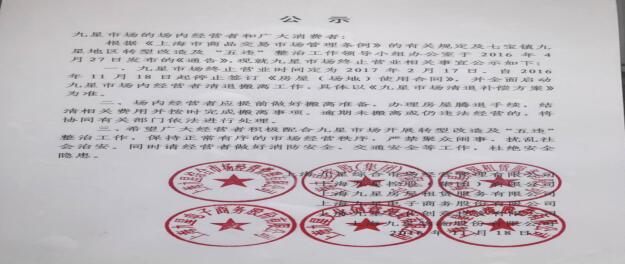 公 示
九星市场的场内经营者和广大消费者：
根据《上海市商品交易市场管理条例》的有关规定及七宝镇九
星地区转型改造及“五违”整治工作领导小组办公室于 2016 年 4
月 27 日发布的《通告》，现就九星市场终止营业相关事宜公示如下：
一、九星市场终止营业时间定为 2017 年 2 月 17 日。自 2016
年 11 月 18 日起停止签订《房屋（场地）使用合同》，并全面启动
九星市场内经营者清退搬离工作，具体以《九星市场清退补偿方案》
为准。
二、场内经营者应提前做好搬离准备，办理房屋腾退手续，结
清相关费用并按时完成搬离事项。逾期未搬离或仍违法经营的，将
协同有关部门依法进行处理。
三、希望广大经营者积极配合九星市场开展转型改造及“五违”
整治工作，保持正常有序的市场经营秩序，严禁聚众闹事、扰乱社
会治安。同时请经营者做好消防安全、交通安全等工作，杜绝安全
隐患。
上海九星综合市场经营管理有限公司
上海九星控股（集团）有限公司
上海九星房屋租赁服务有限公司
上海九星电子商务股份有限公司
2016 年 11 月 18 日